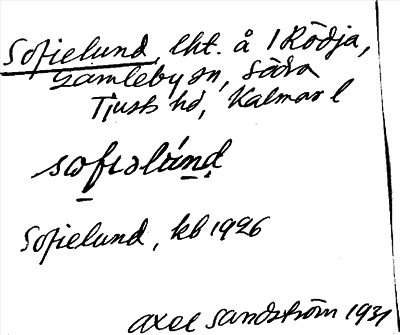 Sofielund, lht. å 1 Rödja,
Gamleby sn, Södra
Tjusts hd, Kalmar l
sωfιəlúnd
Sofielund, kb 1926
Axel Sandström 1931